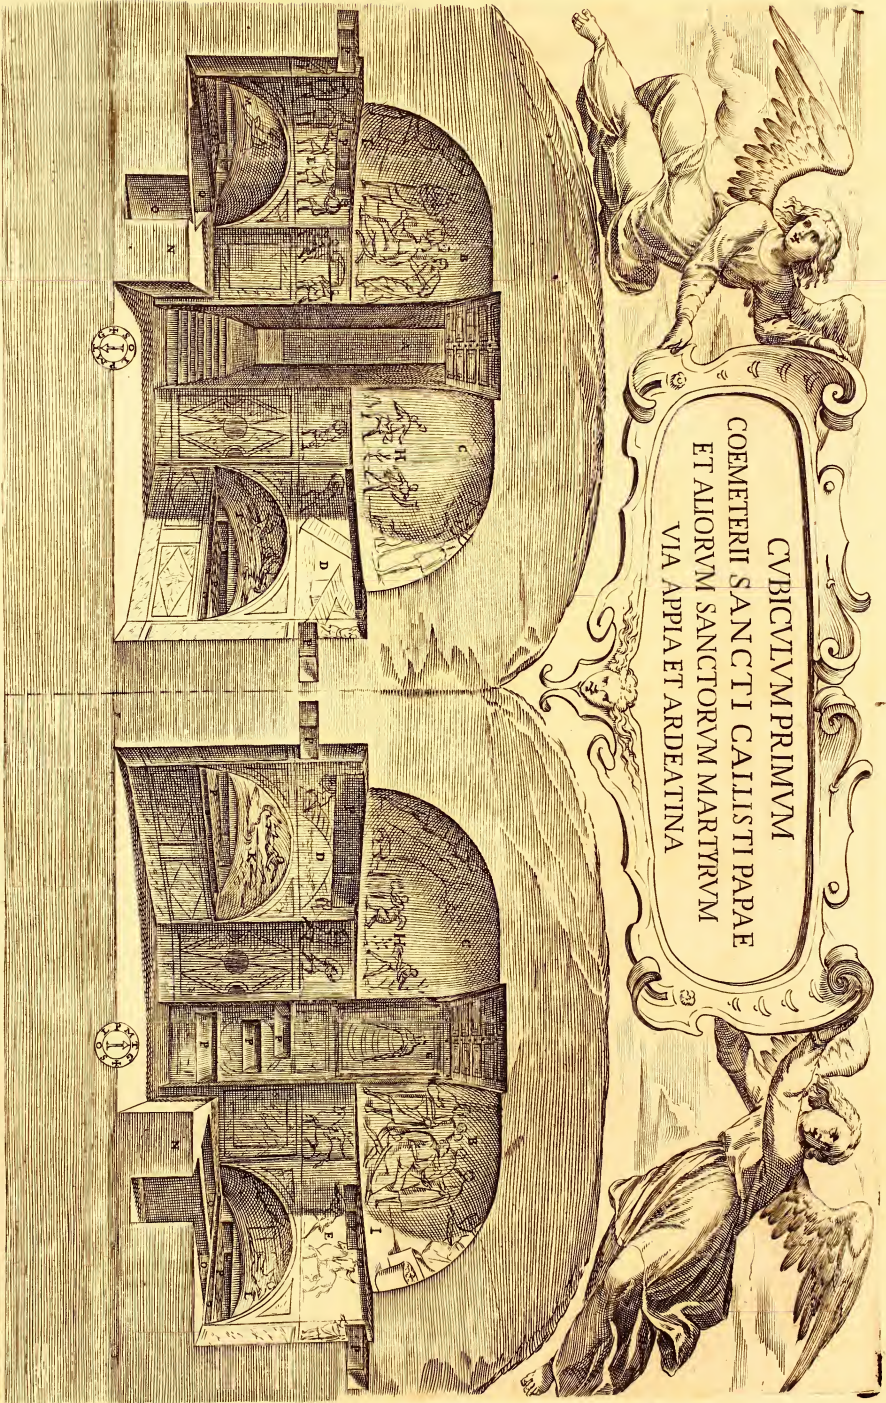 CVBICVLVM PRIMVM
COEMETERII SANCTI CALLISTI PAPAE
ET ALIORVM SANCTORVM MARTYRVM
VIA APPIA ET ARDEATINA
B
H
C
D
N
O
E
P
D
H
C
P
P
P
B
I
E
N
O
P